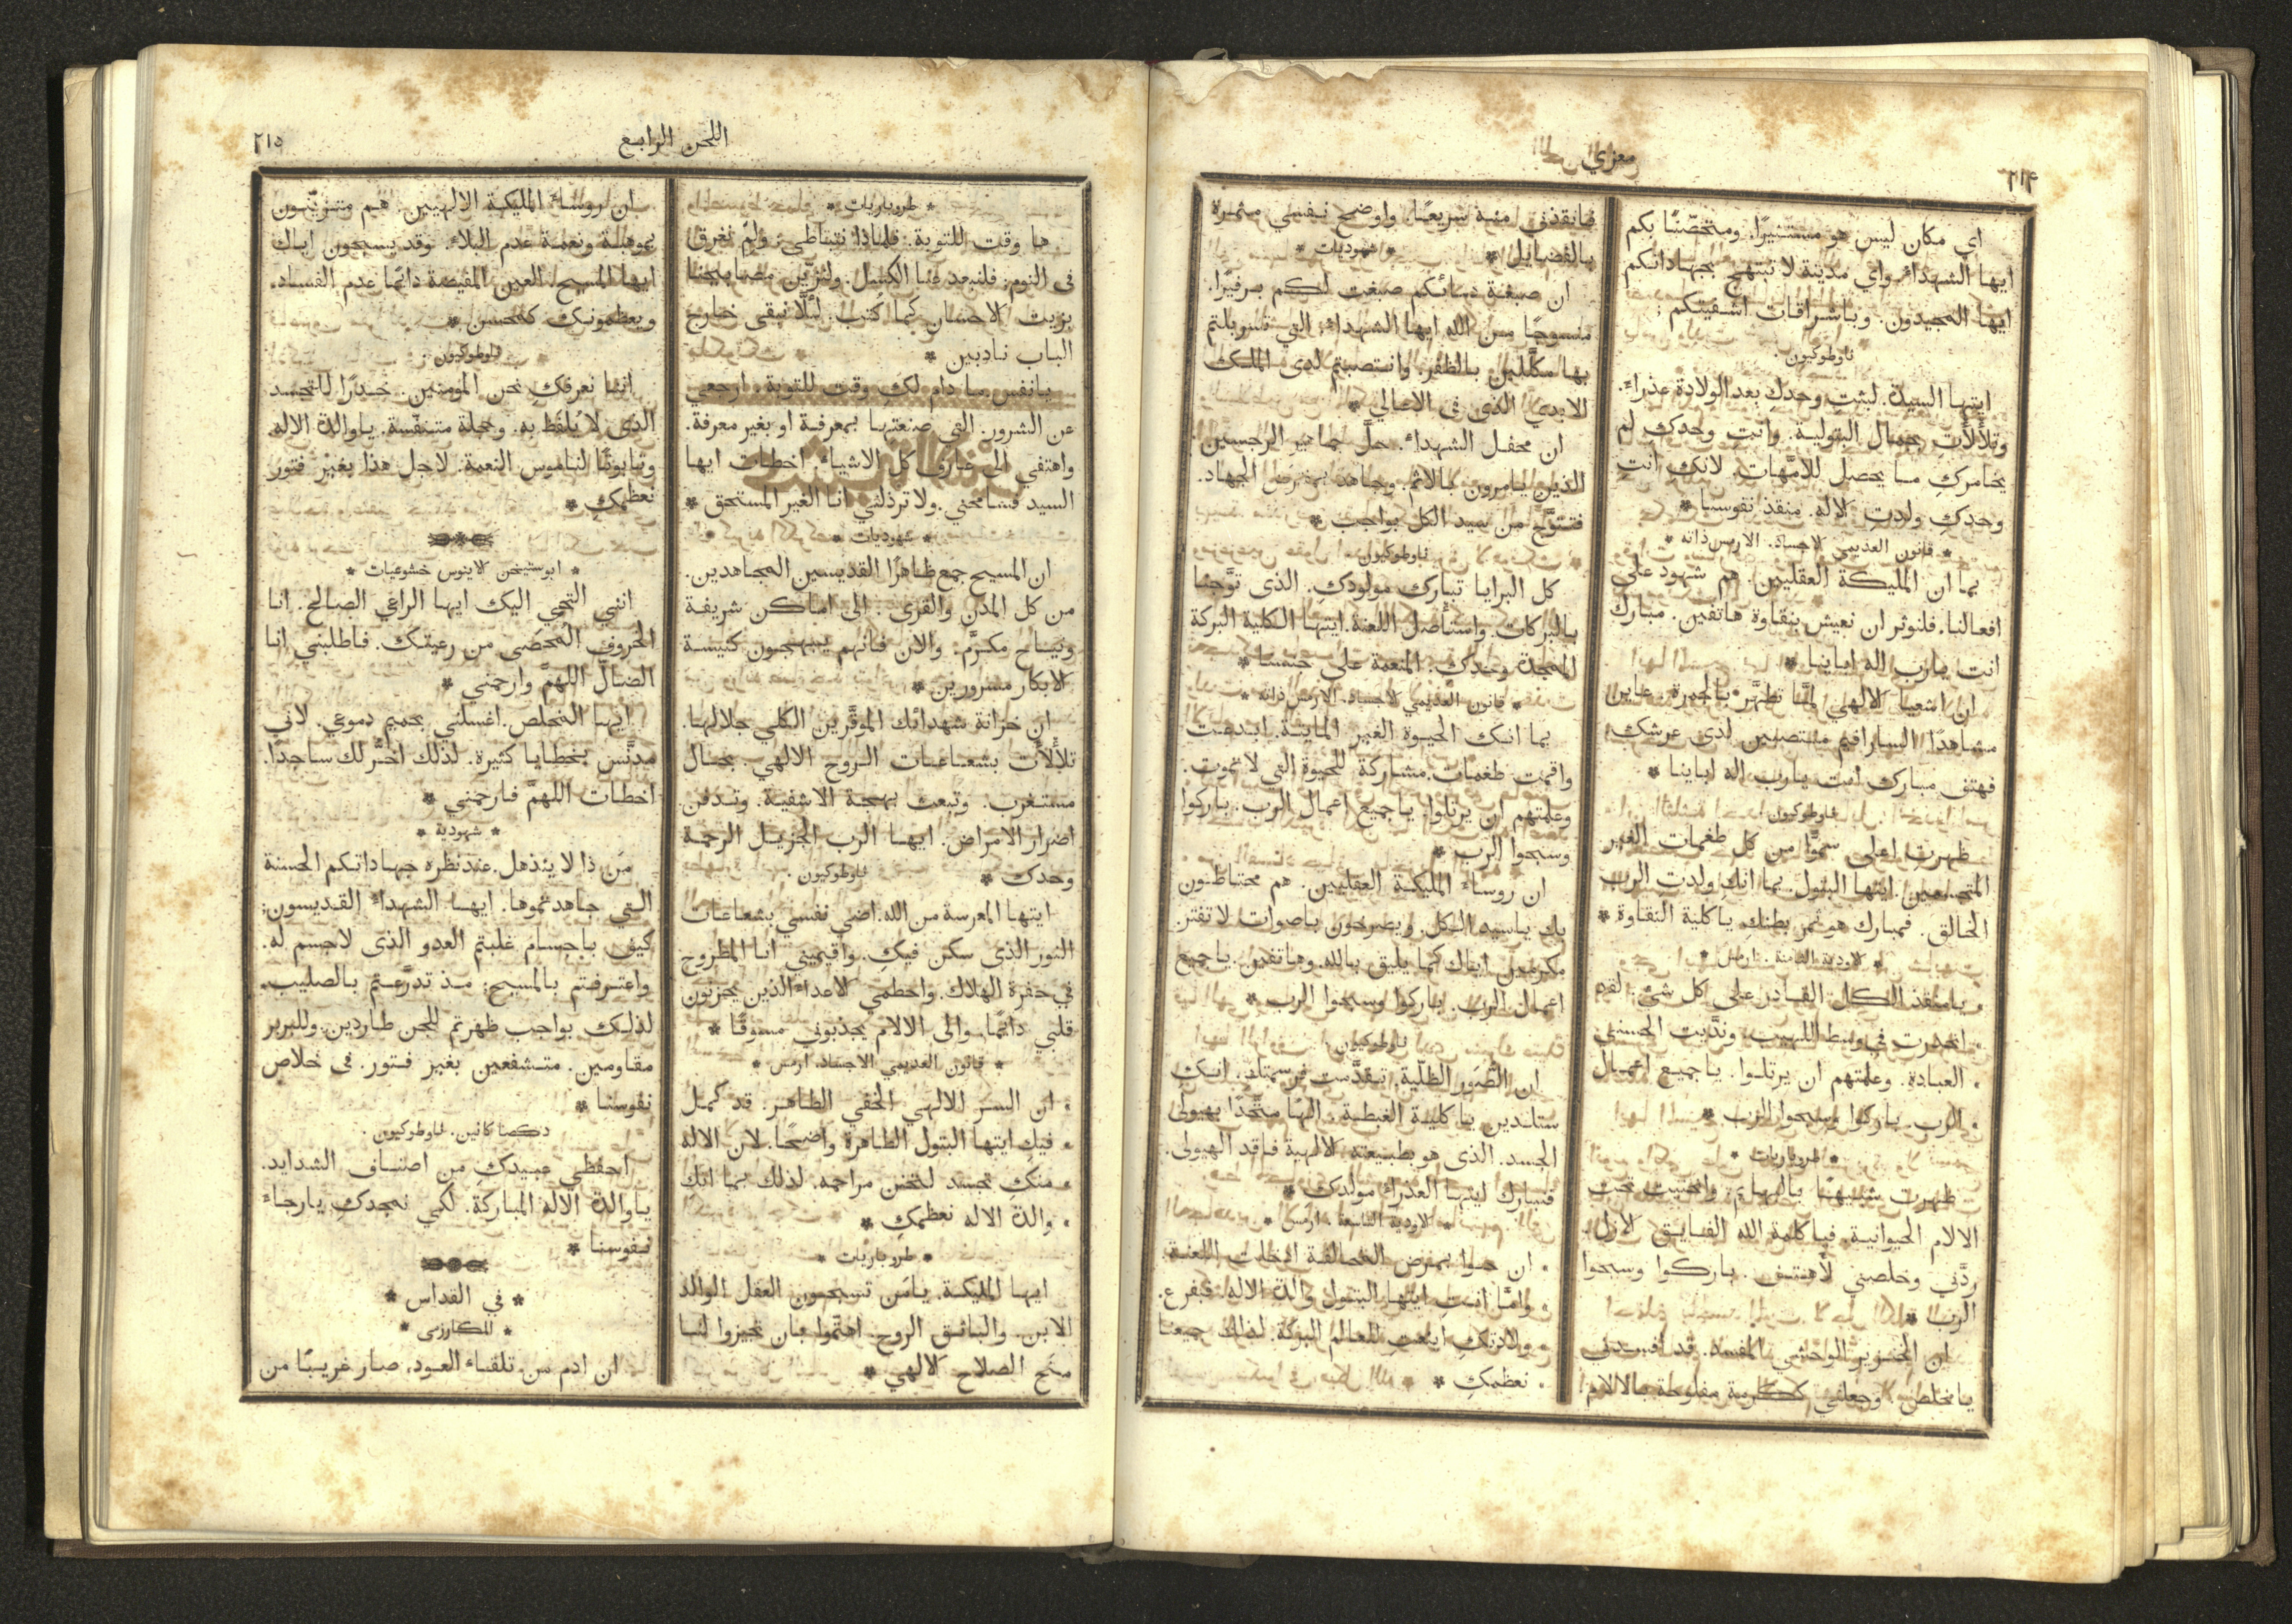 معزي
٢١٤
اي مكان ليس هو مستنيرًا. ومتحصّنًا بكم
ايها الشهداء. واي مدينة لا تبتهج بجهاداتكم
ايها المجيدون. وباشراقات اشفيتكم:
ثاوطوكيون.
ايتها السيدة. لبثتِ وحدكِ بعد الولادة عذراءً.
وتلألأتِ بجمال البتولية. وانتِ وحدكِ لم
يخامركِ ما يحصل للامّهات. لانكِ انتِ
وحدكِ ولدتِ الاله. منقذ نفوسنا *
* قانون العديمي الاجساد. الارمس ذاته *
بما ان المليكة العقليين. هم شهود على
افعالنا. فلنوثر ان نعيش بنقاوة هاتفين. مبارك
انت يارب اله ابائنا *
ان اشعيا الالهي لمَّا تطهَّر بالجمرة. عاين
مشاهدًا السارافيم منتصبين لدى عرشك.
فهتف مبارك انت يارب اله اباينا *
ثاوطوكيون
ظهرتِ اعلى سموًّا من كل طغمات الغير
المتجسمين. ايتها البتول. بما انكِ ولدتِ الرب
الخالق. فمبارك هو ثمر بطنك يا كلية النقاوة *
* الاودية الثامنة. ارمس *
يا منقذ الكل القادر على كل شيء. لقد
• انحدرت في وسط اللهيب. وندَّيت الحسني
• العبادة. وعلمتهم ان يرتلوا. يا جميع اعمال
• الرب. باركوا وسبحوا الرب *
* طروباريات *
ظهرت شبيهًا بالبهايم. وانحنيت تحت
الالام الحيوانية. فيا كلمة الله الفايق الازل.
ردَّني وخلصني لأهتف. باركوا وسبحوا
الرب *
ان الخنزير الوحشي المفسد. قد افسدني
يا مخلص. وجعلني ككرمة مفلوحة بالالام.
فانقذني منه سريعًا. واوضح نفسي مثمرة
بالفضايل * * شهوديات *
ان صبغة دمائكم صبغت لكم برفيرًا.
منسوجًا من الله ايها الشهداء. التي تسربلتم
بها مكلَّلين بالظفر. وانتصبتم لدى الملك
الابدي الذي في الاعالي *
ان محفل الشهداء. حلَّ جماهير الرجسين
الذين يامرون بالاثم. وجاهد الجهاد.
فتتوَّج من سيد الكل بواجب *
ثاوطوكيون
كل البرايا تبارك مولودكِ. الذي توَّجنا
بالبركات. واستأصل اللعنة. ايتها الكلية البركة
الممجدة وحدكِ. المنعمة على جنسنا *
* قانون العديمي الاجساد. الارمس ذاته *
بما انك الحيوة الغير المايتة. ابدعت
واقمت طغمات. مشاركة للحيوة التي لا تموت.
وعلمتهم ان يرتلوا. يا جميع اعمال الرب. باركوا
وسبحوا الرب *
ان روساء المليكة العقليين. هم محتاطون
بك يا سيد الكل. ويصرخون باصوات لا تفتر.
مكرمين اياك كما يليق بالله. وهاتفين. يا جميع
اعمال الرب. باركوا وسبحوا الرب *
ثاوطوكيون
ان الصُّوَر الظلّية. تقدَّست فرسمتك. انكِ
ستلدين يا كلية الغبطة. الهًا متَّحدًا بهيولى
الجسد. الذي هو بطبيعته الالهية فاقد الهيولى.
فتبارك ايتها العذراء مولدك *
* الاودية التاسعة. ارمس *
• ان حوا بمرض المخالفة ادخلت اللعنة.
• وامَّا انت ايتها البتول والدة الاله. فبفرع.
• ولادتكِ اينعتِ للعالم البركة. لذلك جميعنا
• نعظمكِ *
اللحن الرابع
٢١٥
* طروباريات *
ها وقت للتوبة. فلماذا نتباطى: ولِمَ نغرق
في النوم: فلنبعد عنا الكسل. ولنزيّن مصابيحنا
بزيت الاحسان كما كُتب. لئلَّا نبقى خارج
الباب نادبين *
يا نفس ما دام لكِ وقت للتوبة. ارجعي
عن الشرور. التي صنعتيها بمعرفة او بغير معرفة.
واهتفي الى عارف كل الاشياء. اخطات ايها
السيد فسامحني. ولا ترذلني انا الغير المستحق *
* شهوديات *
ان المسيح جمع ظاهرًا القديسين المجاهدين.
من كل المدن والقرى. الى اماكن شريفة
ونياح مكرَّم. والان فانهم يبهجون كنيسة
الابكار مسرورين *
ان خزانة شهدائك الموقَّرين الكلي جلالها.
تلألأت بشعاعات الروح الالهي بحال
مستغرب. وتبعث بهجة الاشفية. وتدفن
اضرار الامراض. ايها الرب الجزيل الرحمة
وحدك * ثاوطوكيون.
ايتها المعرسة من الله. اضي نفسي بشعاعات
النور الذي سكن فيكِ. واقيميني انا المطروح
في حفرة الهلاك. واحطمي الاعداء الذين يحزنون
قلبي دائمًا. والى الالام يجذبوني مسوقًا *
* قانون العديمي الاجساد. ارمس *
• ان السر الالهي الخفي الطاهر. قد كمل
• فيكِ ايتها البتول الطاهرة واضحًا. لان الاله
• منكِ تجسد لتحنن مراحمه. لذلك بما انكِ
• والدة الاله نعظمكِ *
* طروباريات *
ايها المليكة. يا مَن تسبحون العقل الوالد
الابن. والباثق الروح. اهتمّوا بان تجيزوا لنا
منح الصلاح الالهي *
ان روساء المليكة الالهيين. هم متزيّنون
بموهبة ونعمة عدم البلاء. وقد يسبحون اياك
ايها المسيح. العين المفيضة دائمًا عدم الفساد.
ويعظمونك كمحسن *
ثاوطوكيون.
اننا نعرفكِ نحن المومنين. خدرًا للتجسد
الذي لا يُلفَظ به. وحجلة متنفّسة. يا والدة الاله.
وتابوتًا لناموس النعمة. لاجل هذا بغير فتور
نعظمكِ *
* ابوستيخن الاينوس خشوعيات *
انني التجي اليك ايها الراعي الصالح. انا
الخروف المُحصَى من رعيتك. فاطلبني انا
الضالّ اللهمَّ وارحمني *
ايها المخلص. اغسلني بحميم دموعي. لاني
مدنَّس بخطايا كثيرة. لذلك اخرُّ لك ساجدًا.
اخطات اللهمَّ فارحمني *
* شهودية *
مَن ذا لا يندهل. عند نظره جهاداتكم الحسنة
التي جاهدتموها. ايها الشهداء القديسون:
كيف باجسام غلبتم العدو الذي لا جسم له.
واعترفتم بالمسيح: مذ تدرَّعتم بالصليب.
لذلك بواجب ظهرتم للجن طاردين. وللبربر
مقاومين. متشفعين بغير فتور. في خلاص
نفوسنا *
ذكصا كانين. ثاوطوكيون.
احفظي عبيدكِ من اصناف الشدايد.
يا والدة الاله المباركة. لكي نمجدكِ يا رجاء
نفوسنا *
* في القداس *
* المكارزمي *
ان ادم من تلقاء العود. صار غريبًا من